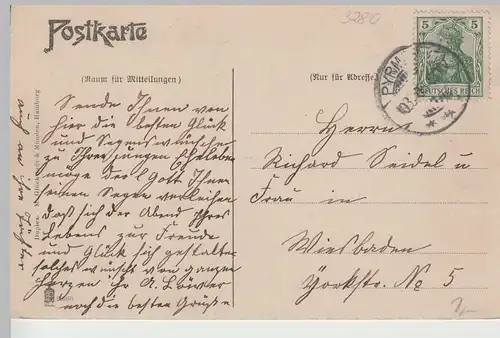 Postkarte
3280
(Raum für Mitteilungen)
(Nur für Adresse)
5 5
DEUTSCHES REICH
PYRM
Sende Ihnen von
hier die besten Glück
und Segenswünsche
zu Ihrem jungen Eheleben
möge der l. Gott Ihnen
seinen Segen verleihen
daß sich der Abend Ihres
Lebens zur Freude
und Glück sich gestalte
solches wünscht von ganzem
Herzen ihr A.
noch die besten Grüße
auch an Ihre
Herrn
Richard Seidel u
Frau in
Wiesbaden
Yorkstr. No 5
& Münden, Hamburg
2,-